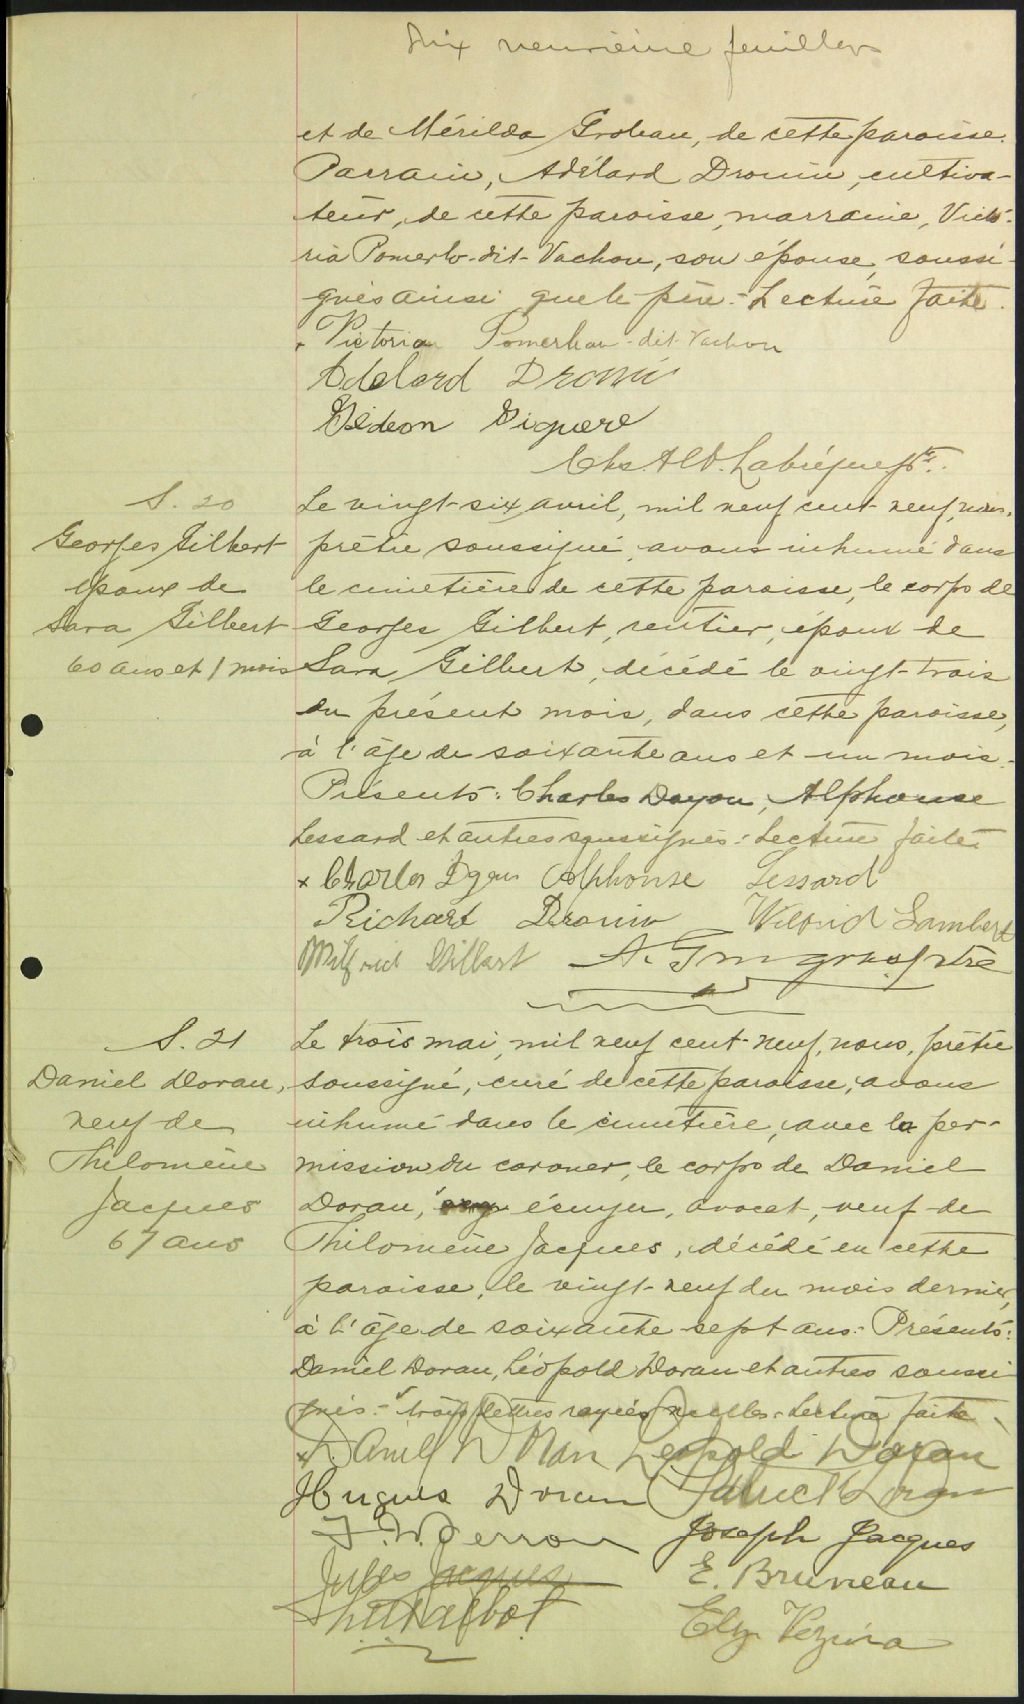 Dix neuvième feuillet
et de Mérilda Groleau, de cette paroisse.
Parrain, Adélard Drouin, cultiva-
teur, de cette paroisse, marraine, Victo-
ria Pomerlo-dit-Vachon, son épouse, soussi-
gnés ainsi que le père. Lecture faite.
Victoria Pomerleau-dit-Vachon
Adelard Drouin
Gédeon Giguere
Chs. Alb. Labrèque ptre.
S. 20
Georges Gilbert
époux de
Sara Gilbert
60 ans et 1 mois
Le vingt-six avril, mil neuf cent-neuf, nous,
prêtre soussigné, avons inhumé dans
le cimetière de cette paroisse, le corps de
Georges Gilbert, rentier, époux de
Sara Gilbert, décédé le vingt-trois
du présent mois, dans cette paroisse,
à l'âge de soixante ans et un mois.
Présents: Charles Doyon, Alphonse
Lessard et autres soussignés. Lecture faite.
x Charles Alphonse Lessard
Richard Drouin Wilfrid Lambert
Wilfrid Gilbert ptre
S. 21
Daniel Doran,
veuf de
Philomène
Jacques
67 ans
Le trois mai, mil neuf cent-neuf, nous, prêtre
soussigné, curé de cette paroisse, avons
inhumé dans le cimetière, avec la per-
mission du coroner, le corps de Daniel
Doran, écuyer, avocat, veuf de
Philomène Jacques, décédé en cette
paroisse, le vingt-neuf du mois dernier,
à l'âge de soixante-sept ans. Présents:
Daniel Doran, Léopold Doran et autres soussi-
gnés. trois lettres rayées nulles. Lecture faite.
x Daniel Doran Leopold Doran
Hugues Doran Patrick Doran
J. W. Perron Joseph Jacques
Jules Jacques E. Bruneau
Talbot Elz. Vézina